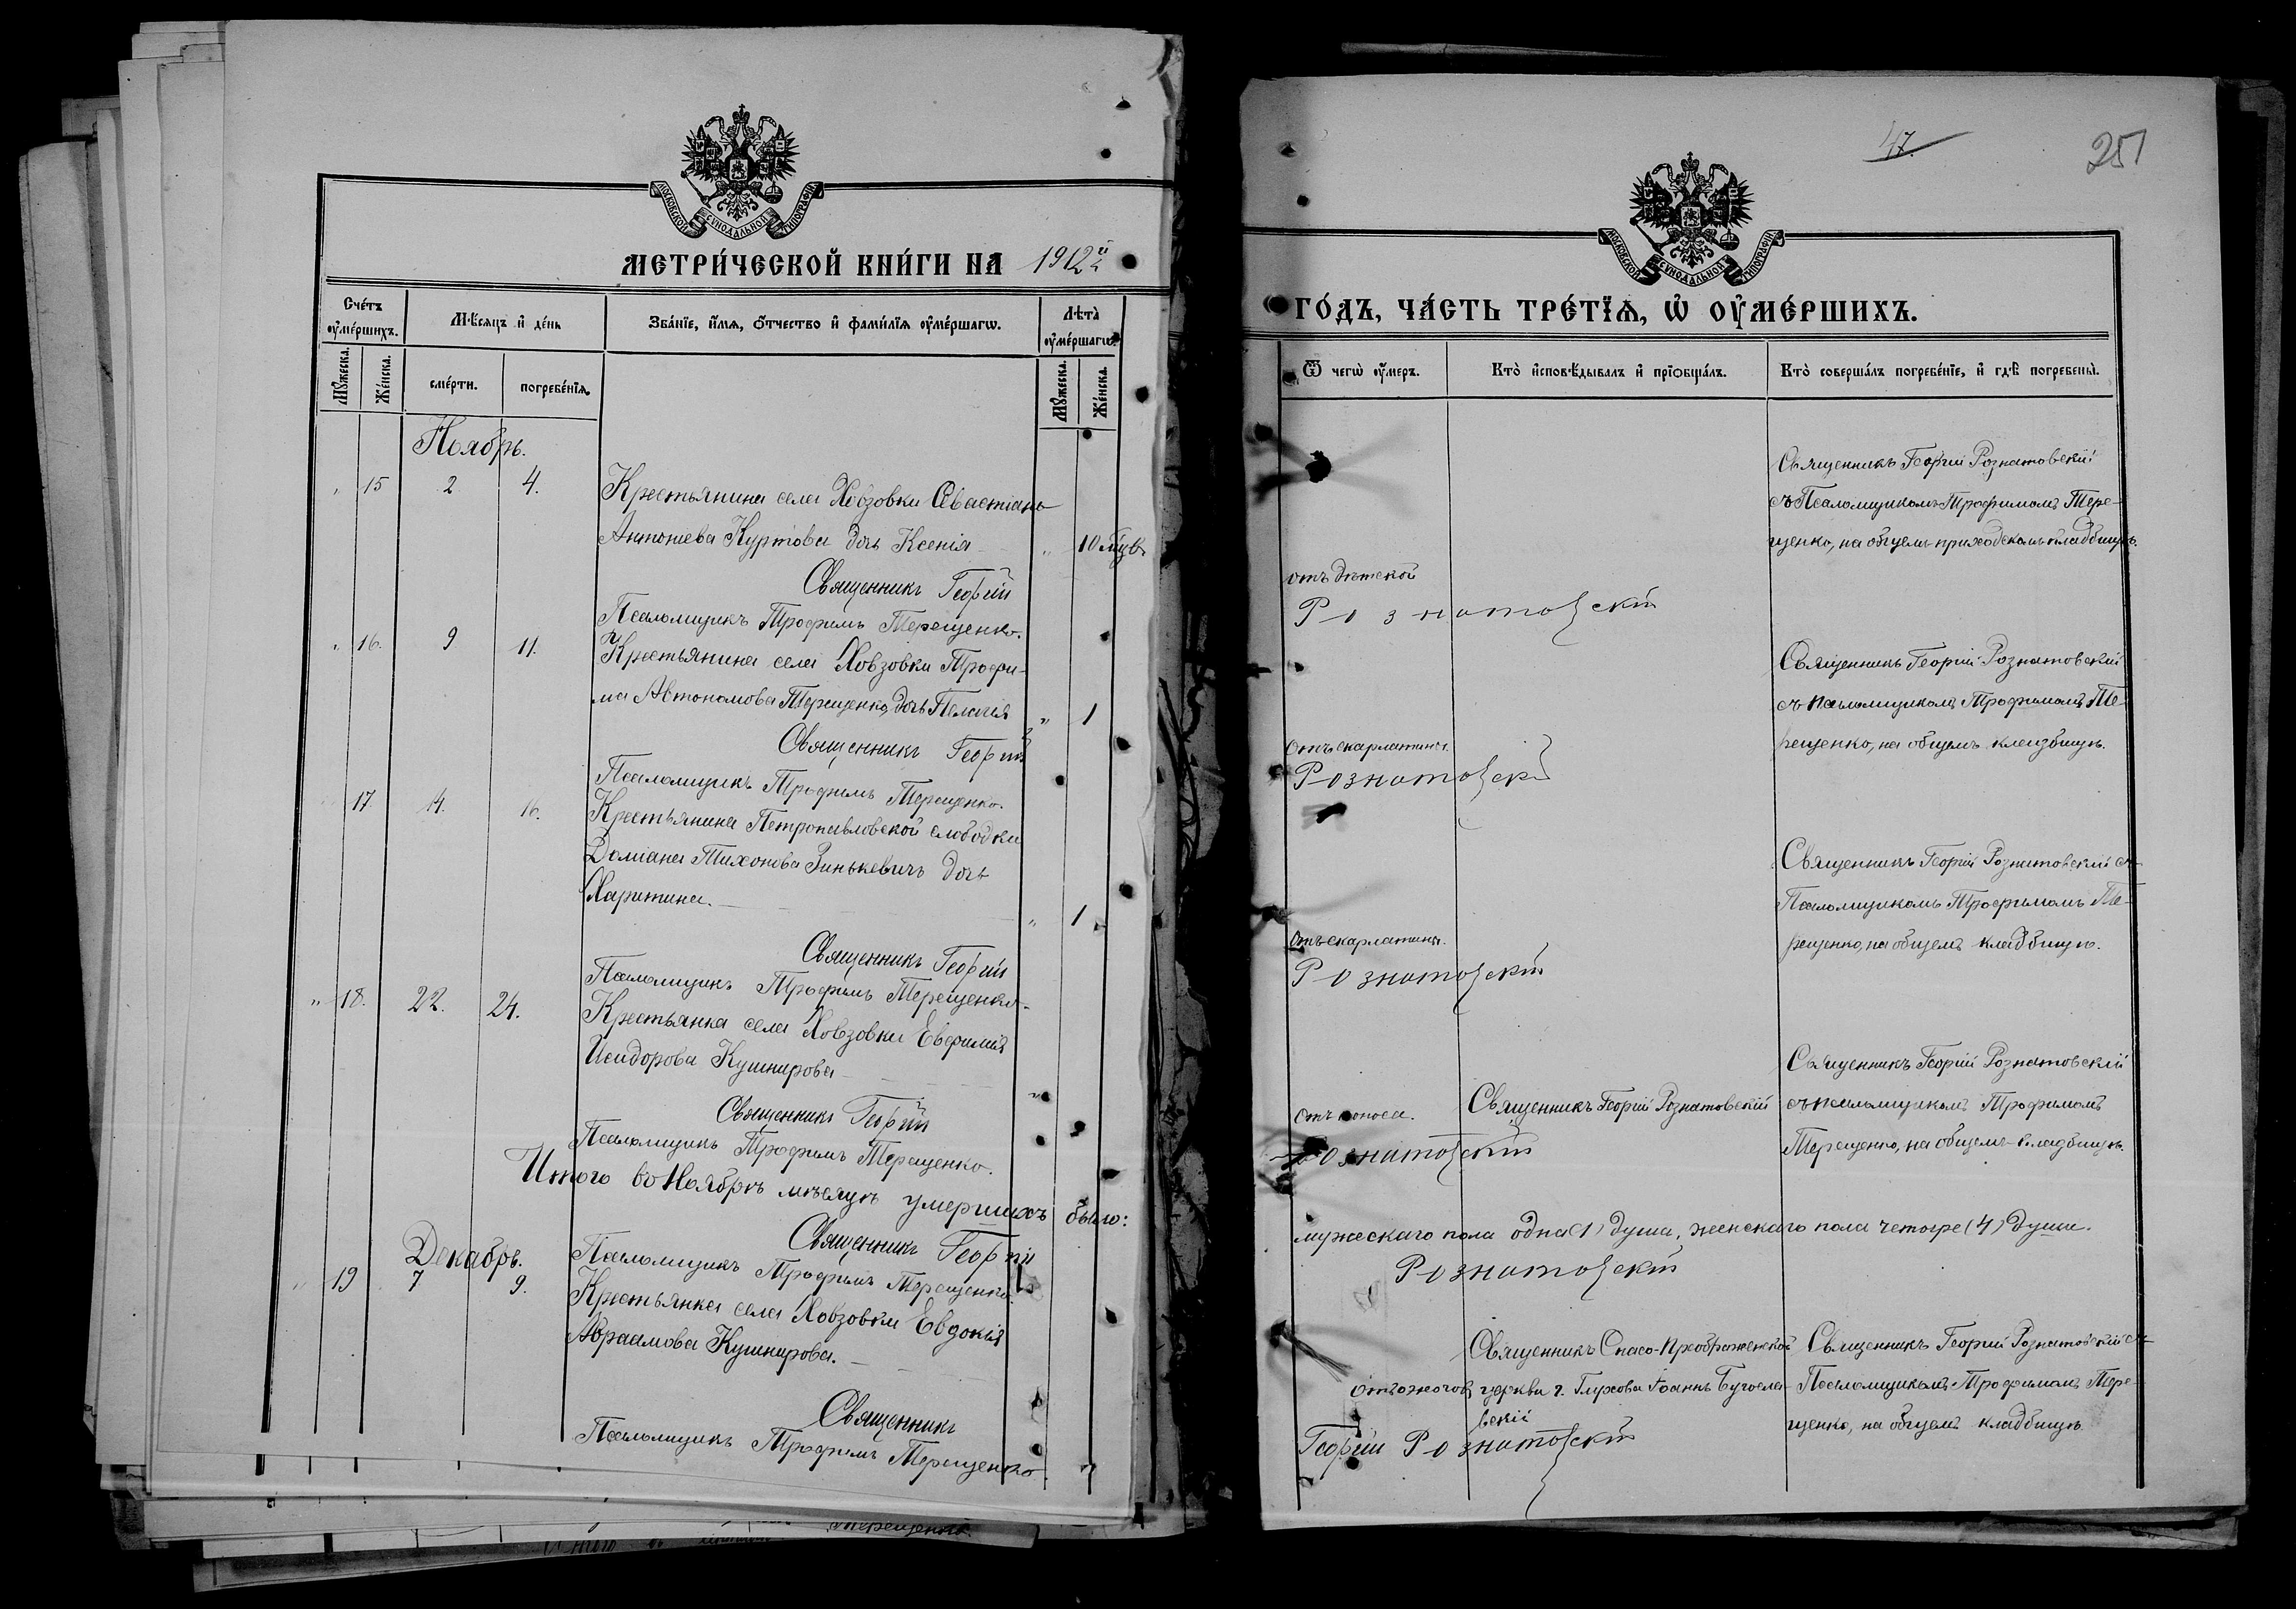 МОСКОВСКОЙ СѴНОДАЛЬНОЙ ТИПОГРАФІИ
МЕТРИ́ЧЕСКОЙ КНИ́ГИ НА 1912й
Сче́тъ оу҆ме́ршихъ.
Мѣ́сяцъ и҆ де́нь
Зва́нїе, и҆́мѧ, ѻ҆́тчество и҆ фами́лїѧ оу҆ме́ршагѡ.
Лѣта̀ оу҆ме́ршагѡ.
Мꙋ́жеска.
Же́нска.
сме́рти.
погребе́нїѧ.
Мꙋ́жеска.
Же́нска.
Ноябрь.
" 15 2 4. Крестьянина села Ховзовки Севастіана
Антоніева Куртова дочь Ксенія " 10 мѣс.
Священникъ Георгій
Псаломщикъ Трофимъ Терещенко.
" 16. 9 11. Крестьянина села Ховзовки Трофи-
ма Автономова Терещенко, дочь Пелагія " 1
Священникъ Георгій
Псаломщикъ Трофимъ Терещенко.
17 14. 16. Крестьянина Петропавловской слободки
Доміана Тихонова Зинькевичъ дочь
Харитина. " 1
Священникъ Георгій
Псаломщикъ Трофимъ Терещенко.
" 18. 22. 24. Крестьянка села Ховзовки Евфимія
Исидорова Кушнирова
Священникъ Георгій
Псаломщикъ Трофимъ Терещенко.
Итого въ Ноябрѣ мѣсяцѣ умершихъ было:
Священникъ Георгій
Декабрь. Псаломщикъ Трофимъ Терещенко.
" 19 7 9. Крестьянка села Ховзовки Евдокія
Авраамова Кушнирова.
Священникъ
Псаломщикъ Трофимъ Терещенко.
47.
251
МОСКОВСКОЙ СѴНОДАЛЬНОЙ ТИПОГРАФІИ
ГО́ДЪ, ЧА́СТЬ ТРЕ́ТЇѦ, Ѡ҆ ОУ҆МЕ́РШИХЪ.
Ѿ чегѡ̀ оу҆́меръ.
Кто̀ и҆сповѣ́дывалъ и҆ прїѻбща́лъ.
Кто̀ соверша́лъ погребе́нїе, и҆ гдѣ̀ погребены̀.
Священникъ Георгій Рознатовскій
съ Псаломщикомъ Трофимомъ Тере-
щенко, на общемъ приходскомъ кладбищѣ.
отъ дѣтской
Рознатовскій
Священникъ Георгій Рознатовскій
съ псаломщикомъ Трофимомъ Те-
рещенко, на общемъ кладбищѣ.
отъ скарлатины.
Рознатовскій
Священникъ Георгій Рознатовскій съ
Псаломщикомъ Трофимомъ Те-
рещенко, на общемъ кладбищѣ.
отъ скарлатины.
Рознатовскій
Священникъ Георгій Рознатовскій
отъ поноса. Священникъ Георгій Рознатовскій съ псаломщикомъ Трофимомъ
Терещенко, на общемъ кладбищѣ.
Рознатовскій
мужескаго пола одна (1) душа, женскаго пола четыре (4) души.
Рознатовскій
Священникъ Спасо-Преображенской Священникъ Георгій Рознатовскій съ
отъ ожоговъ церкви г. Глухова Іоаннъ Псаломщикомъ Трофимомъ Тере-
щенко, на общемъ кладбищѣ.
Георгій Рознатовскій
Терещенко.